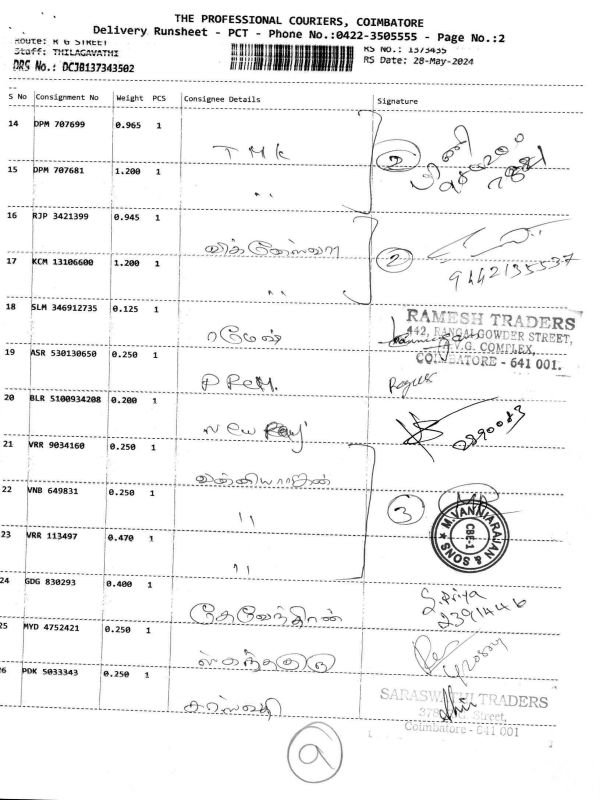 THE PROFESSIONAL COURIERS, COIMBATORE
Delivery Runsheet - PCT - Phone No.:0422-3505555 - Page No.:2
Route: R G STREET
Staff: THILAGAVATHI
RS No.: 1373435
DRS No.: DCJB137343502
RS Date: 28-May-2024
S No Consignment No Weight PCS Consignee Details Signature
14 DPM 707699 0.965 1
TMK
2
15 DPM 707681 1.200 1
"
16 RJP 3421399 0.945 1
விக்னேஸ்வரா
2
9442135537
17 KCM 13106600 1.200 1
"
18 SLM 346912735 0.125 1
ரமேஷ்
RAMESH TRADERS
442, RANGAI GOWDER STREET,
V.G. COMPLEX,
COIMBATORE - 641 001.
19 ASR 530130650 0.250 1
PREM.
20 BLR 5100934208 0.200 1
New
2390083
21 VRR 9034160 0.250 1
வன்னியராஜன்
22 VNB 649831 0.250 1
"
3
M.VANNIARAJAN & SONS
CBE-1
23 VRR 113497 0.470 1
"
24 GDG 830293 0.400 1
தேவேந்திரன்
S. Priya
2391446
25 MYD 4752421 0.250 1
ஸ்கந்தகுரு
26 PDK 5033343 0.250 1
சரஸ்வதி
SARASWATHI TRADERS
Street,
Coimbatore - 641 001
9